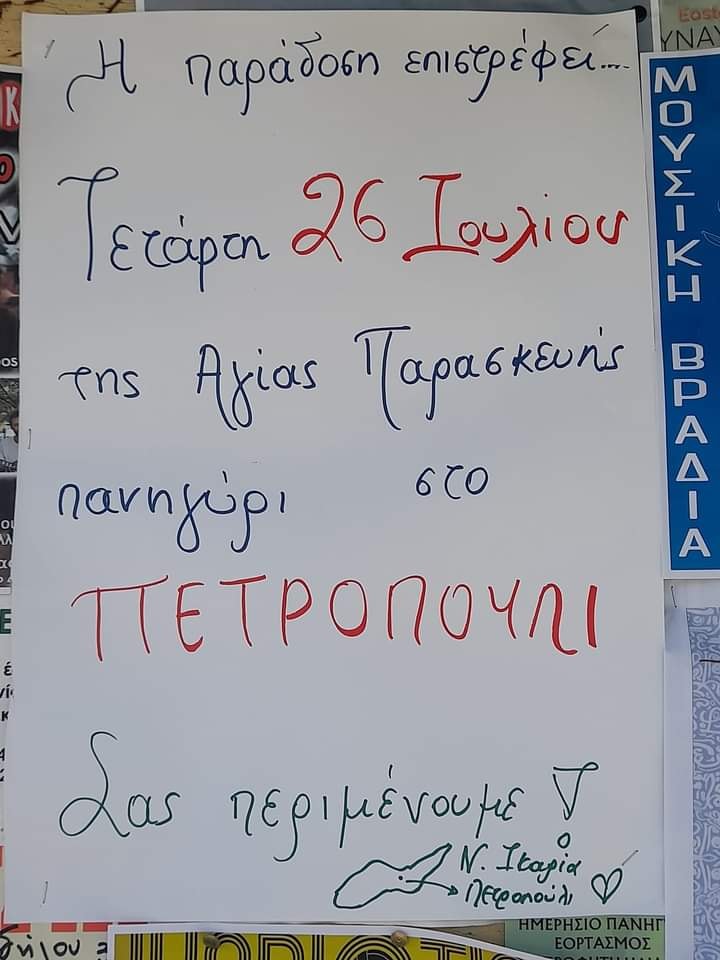 Η παράδοση επιστρέφει....
Τετάρτη 26 Ιουλίου
της Αγίας Παρασκευής
πανηγύρι στο
ΠΕΤΡΟΠΟΥΛΙ
Σας περιμένουμε !
Ν. Ικαρία
Πετροπούλι
ΜΟΥΣΙΚΗ ΒΡΑΔΙΑ
ΗΜΕΡΗΣΙΟ ΠΑΝΗΓ
ΕΟΡΤΑΣΜΟΣ